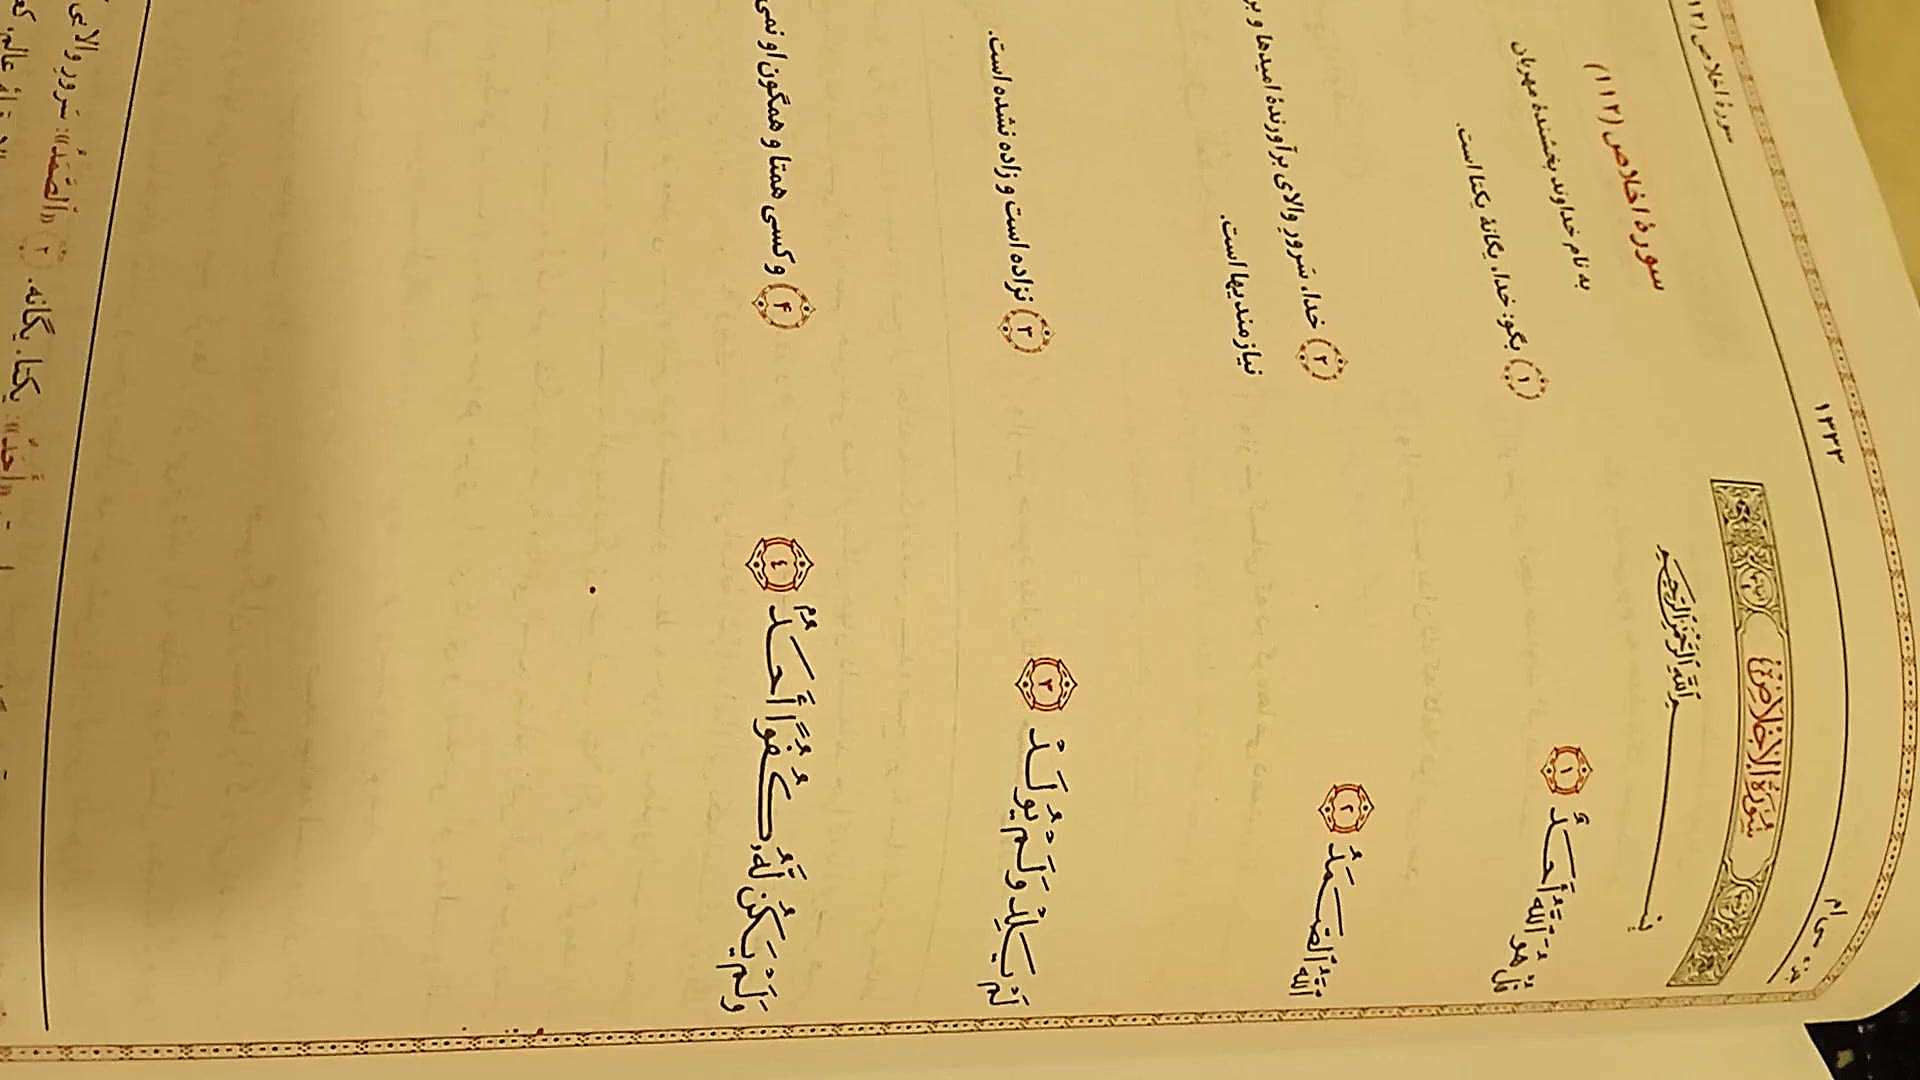 جزء سی‌ام
۱۳۳۳
سورهٔ اخلاص (۱۲
سُورَةُ الإِخْلَاصِ
بِسْمِ اللَّهِ الرَّحْمَنِ الرَّحِيمِ
قُلْ هُوَ اللَّهُ أَحَدٌ ۝١
اللَّهُ الصَّمَدُ ۝٢
لَمْ يَلِدْ وَلَمْ يُولَدْ ۝٣
وَلَمْ يَكُن لَّهُ كُفُوًا أَحَدٌ ۝٤
سورهٔ اخلاص (۱۱۲)
به نام خداوند بخشندهٔ مهربان
(۱) بگو: خدا، یگانهٔ یکتا است.
(۲) خدا، سَرورِ والای برآورندهٔ امیدها و بر
نیازمندیها است.
(۳) نزاده است و زاده نشده است.
(۴) و کسی همتا و همگون او نمی
«أَحَدٌ»: یکتا. یگانه. (۲) «اَلصَّمَدُ»: سَرورِ والایی